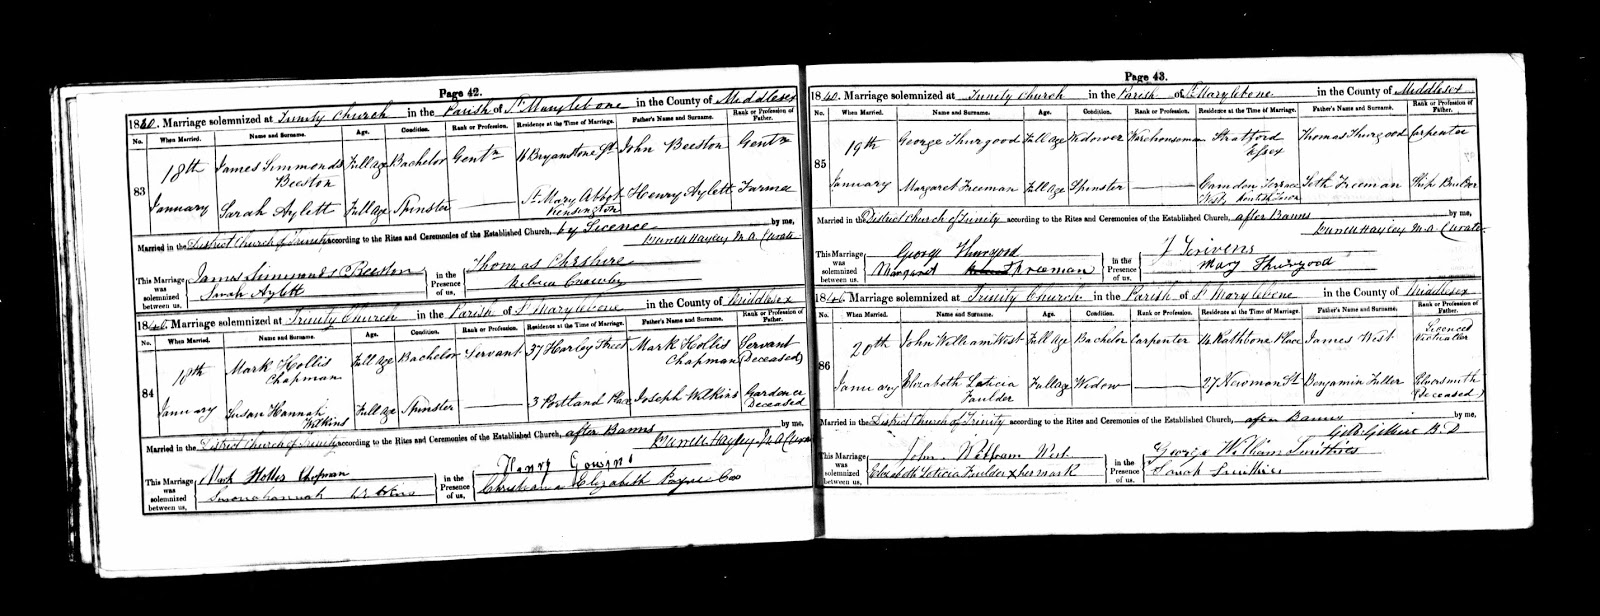 Page 42.
1840. Marriage solemnized at Trinity Church in the Parish of St. Marylebone in the County of Middlesex
No. When Married. Name and Surname. Age. Condition. Rank or Profession. Residence at the Time of Marriage. Father's Name and Surname. Rank or Profession of Father.
83 18th January James Simmonds Beeston Full Age Bachelor Gentn 16 Bryanstone St John Beeston Gentn
Sarah Aylett Full Age Spinster St. Mary Abbot Kensington Henry Aylett Farmer
Married in the District Church of Trinity according to the Rites and Ceremonies of the Established Church, by Licence by me,
Burnell Hayley M.A. Curate
This Marriage was solemnized between us, James Simmonds Beeston in the Presence of us, Thomas Cheshire
Sarah Aylett Rebecca
1840. Marriage solemnized at Trinity Church in the Parish of St. Marylebone in the County of Middlesex
No. When Married. Name and Surname. Age. Condition. Rank or Profession. Residence at the Time of Marriage. Father's Name and Surname. Rank or Profession of Father.
84 18th January Mark Hollis Chapman Full Age Bachelor Servant 37 Harley Street Mark Hollis Chapman Servant (Deceased)
Susan Hannah Wilkins Full Age Spinster 3 Portland Place Joseph Wilkins Gardener Deceased
Married in the District Church of Trinity according to the Rites and Ceremonies of the Established Church, after Banns by me,
Burnell Hayley M.A. Curate
This Marriage was solemnized between us, Mark Hollis Chapman in the Presence of us, Henry
Christiana Elizabeth Cox
Page 43.
1840. Marriage solemnized at Trinity Church in the Parish of St. Marylebone in the County of Middlesex
No. When Married. Name and Surname. Age. Condition. Rank or Profession. Residence at the Time of Marriage. Father's Name and Surname. Rank or Profession of Father.
85 19th January George Thurgood Full Age Widower Warehouseman Stratford Essex Thomas Thurgood Carpenter
Margaret Freeman Full Age Spinster Camden Terrace West, Kentish Town Seth Freeman Ship Broker
Married in the District Church of Trinity according to the Rites and Ceremonies of the Established Church, after Banns by me,
Burnell Hayley M.A. Curate
This Marriage was solemnized between us, George Thurgood in the Presence of us, J Scrivens
Margaret Freeman Mary Thurgood
1840. Marriage solemnized at Trinity Church in the Parish of St. Marylebone in the County of Middlesex
No. When Married. Name and Surname. Age. Condition. Rank or Profession. Residence at the Time of Marriage. Father's Name and Surname. Rank or Profession of Father.
86 20th January John William West Full Age Bachelor Carpenter 14 Rathbone Place James West Licenced Victualler
Elizabeth Leticia Faulder Full Age Widow 27 Newman St Benjamin Fuller Silversmith (Deceased)
Married in the District Church of Trinity according to the Rites and Ceremonies of the Established Church, after Banns by me,
B D
This Marriage was solemnized between us, John William West in the Presence of us, George William Smithies
Elizabeth Leticia Faulder x her mark Sarah Smithies